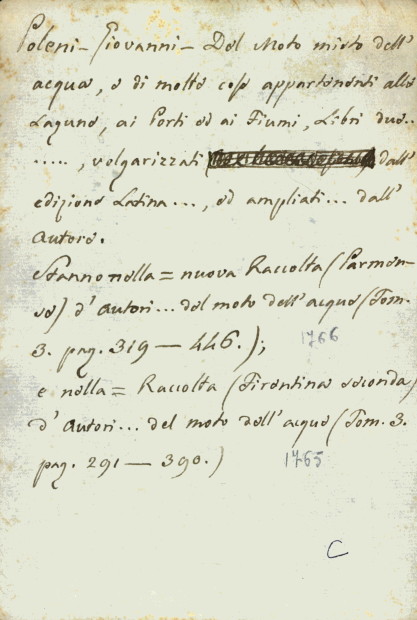 Poleni - Giovanni - Del Moto misto dell'
acqua, e di molte cose appartenenti alle
Lagune, ai Porti ed ai Fiumi, Libri due..
....., volgarizzati dall'
edizione Latina..., ed ampliati... dall'
Autore.
Stanno nella = nuova Raccolta (Parmen-
se) d'Autori... del moto dell'acque (Tom.
3. pag. 319 — 446.); 1766
e nella = Raccolta (Fiorentina seconda)
d'Autori... del moto dell'acque (Tom. 3.
pag. 291 — 390.) 1765
C